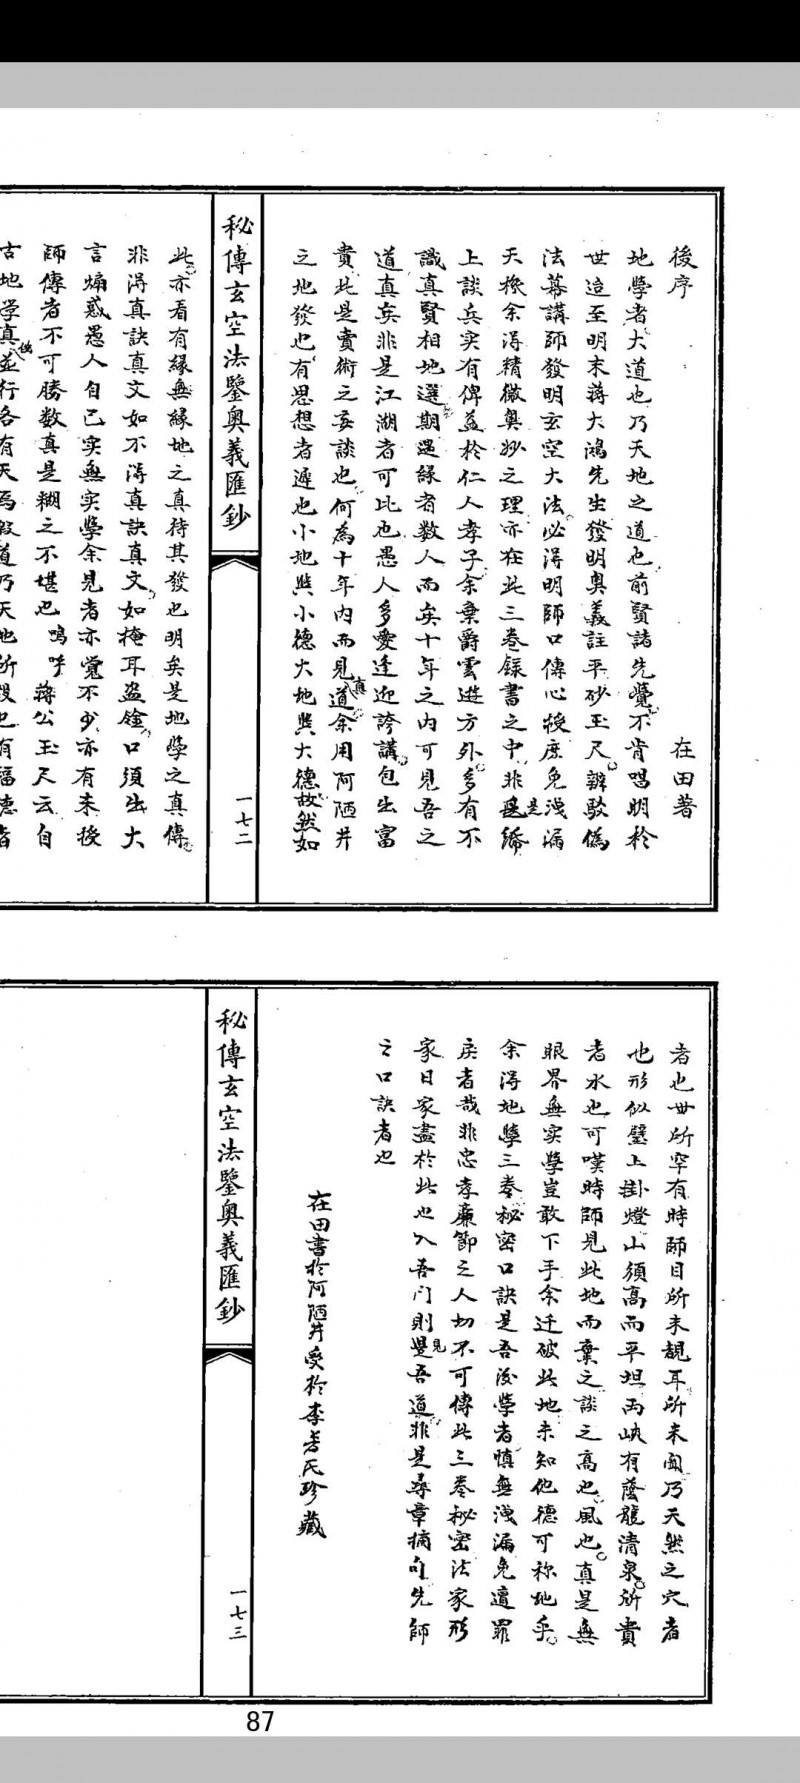 後序
在田著
地學者大道也乃天地之道也前賢諸先覺不肯唱明於
世造至明末蔣大鴻先生發明奧義註平砂玉尺辨駁偽
法幕講師發明玄空大法必得明師口傳心授庶免洩漏
天機余得精微奧妙之理亦在此三卷錄書之中非是
上談兵实有俾益於仁人孝子余棄爵雲遊方外多有不
識真賢相地選期遇緣者数人而矣十年之內可見吾之
道真矣非是江湖者可比也愚人多愛逢迎誇講包出富
貴此是賣術之妄談也何為十年內而見真道余用阿陋井
之地發也有思想者遲也小地與小德大地與大德故然如
秘傳玄空法鑒奧義匯鈔
一七二
此亦看有緣無緣地之真待其發也明矣是地學之真傳
非得真訣真文如不得真訣真文如掩耳盜鈴口須出大
言煽惑愚人自己实無实學余見者亦覺不少亦有未授
師傳者不可勝数真是糊之不堪也嗚呼蔣公玉尺云自
古地学真偽並行各有天焉假道乃天地所設也有福德者
者也世所罕有時師目所未覩耳所未聞乃天然之穴者
也形似壁上掛燈山須高而平坦両峽有蔭龍清泉所貴
者水也可嘆時師見此地而棄之談之高也風也真是無
眼界無实學豈敢下手余迁破此地未知他德可称地乎
余得地學三卷秘密口訣是吾後學者慎無洩漏免遭罪
戾者哉非忠孝廉節之人切不可傳此三卷秘密法家形
家日家盡於此也入吾門則見吾道非是尋章摘句先師
之口訣者也
在田書於阿陋井受於李芳氏珍藏
秘傳玄空法鑒奧義匯鈔
一七三
87